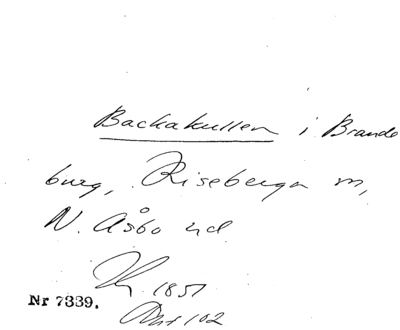 Backakullen i Brande
burg, Riseberga sn,
N. Åsbo hd
1851
Nr 7339.
102